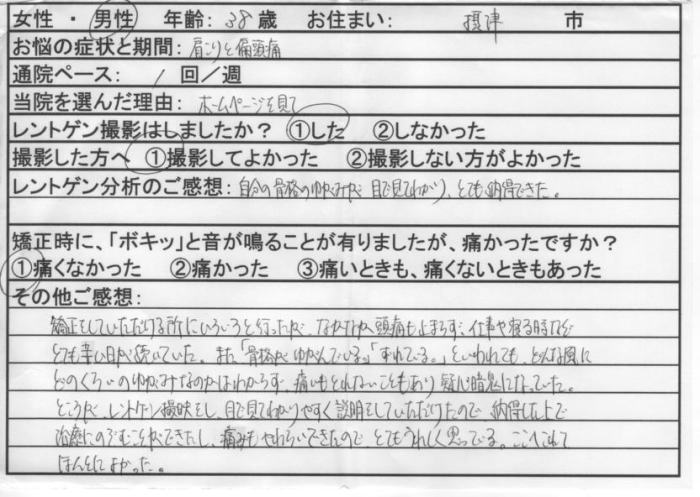 女性 ・ 男性 年齢: 38歳 お住まい: 摂津 市
お悩の症状と期間: 肩こりと偏頭痛
通院ペース: 1 回/週
当院を選んだ理由: ホームページを見て
レントゲン撮影はしましたか? ①した ②しなかった
撮影した方へ ①撮影してよかった ②撮影しない方がよかった
レントゲン分析のご感想: 自分の骨格のゆがみが目で見てわかり、とても納得できた。
矯正時に、「ボキッ」と音が鳴ることが有りましたが、痛かったですか?
①痛くなかった ②痛かった ③痛いときも、痛くないときもあった
その他ご感想:
矯正をしていただける所にいろいろと行ったが、なかなか頭痛も止まらず、仕事や寝る時など
とても辛い日が続いていた。また「骨格がゆがんでいる。」「ずれている。」といわれても、どんな風に
どのくらいのゆがみなのかはわからず、痛いもとれないこともあり疑心暗鬼になっていた。
ところが、レントゲン撮映をし、目で見てわかりやすく説明をしていただけたので、納得した上で
治療にのぞむことができたし、痛みもやわらいできたので、とてもうれしく思っている。ここへこれて
ほんとによかった。